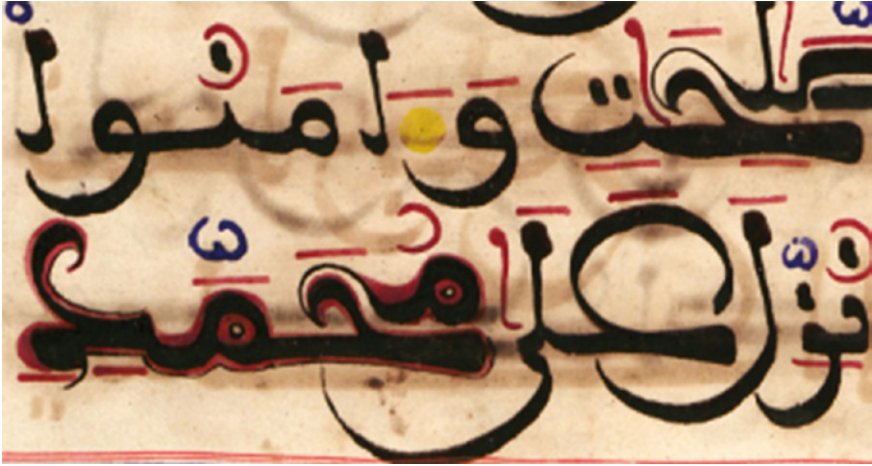 صَلِحَٰتِ وَءَامَنُوا
نُزِّلَ عَلَىٰ مُحَمَّدٍ